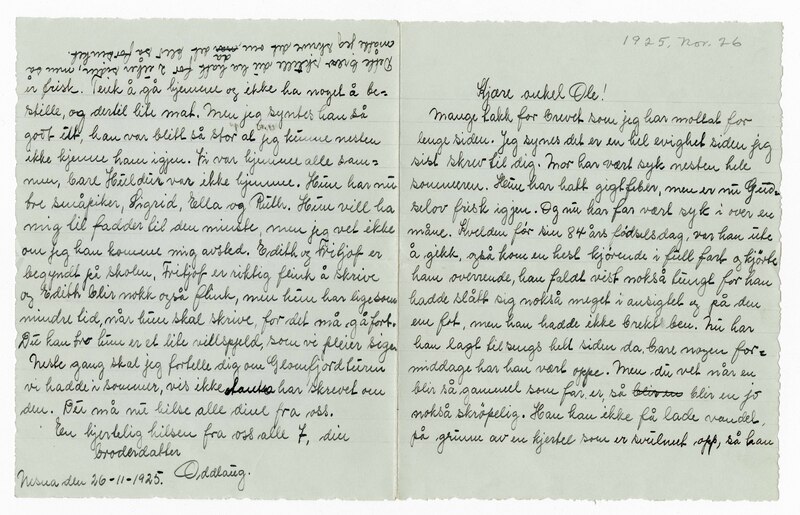 1925, Nov. 26
Kjære onkel Ole!
Mange takk for brevet som jeg har mottat for
lenge siden. Jeg synes det er en hel evighet siden jeg
sist skrev til dig. Mor har vært syk nesten hele
sommeren. Hun har hatt gigtfeber, men er nu Gud-
selov frisk igjen. Og nu har far vært syk i over en
måne. Kvelden før sin 84 års födselsdag, var han ute
å gikk, også kom en hest kjörende i full fart og kjörte
han overrende, han faldt vist nokså tungt for han
hadde slått sig nokså meget i ansigtet og på den
ene fot, men han hadde ikke brekt ben. Nu har
han lagt tilsengs helt siden da, bare nogen for-
middage har han vært oppe. Men du vet når en
blir så gammel som far er, så blir en jo
nokså skröpelig. Han kan ikke få lade vandet,
på grunn av en kjertel som er svulmet opp, så han
er frisk. Tenk å gå hjemme og ikke ha noget å be-
stille, og dertil lite mat. Men jeg syntes han så
godt ut, han var blitt så stor at jeg kunne nesten
ikke kjenne ham igjen. Vi var hjemme alle sam-
men, bare Huldur var ikke hjemme. Hun har nu
tre småpiker, Ingrid, Ella og Ruth. Hun vill ha
mig til fadder til den minste, men jeg vet ikke
om jeg kan komme mig avsted. Edith og Fritjof er
begyndt på skolen, Fritjof er riktig flink å skrive
og Edith blir nokk også flink, men hun har lige som
mindre tid, når hun skal skrive, for det må gå fort.
Du kan tro hun er et lite villspold, som vi pleier sige
Neste gang skal jeg fortelle dig om Glomfjordturen
vi hadde i sommer, vis ikke har skrevet om
den. Du må nu hilse alle dine fra oss.
En hjertelig hilsen fra oss alle 7, din
broderdatter
Oddlaug.
Nesna den 26-11-1925.
Dette brev skulle du ha hatt for 2 uker siden, men så
måtte jeg skrive det om, da det blei så